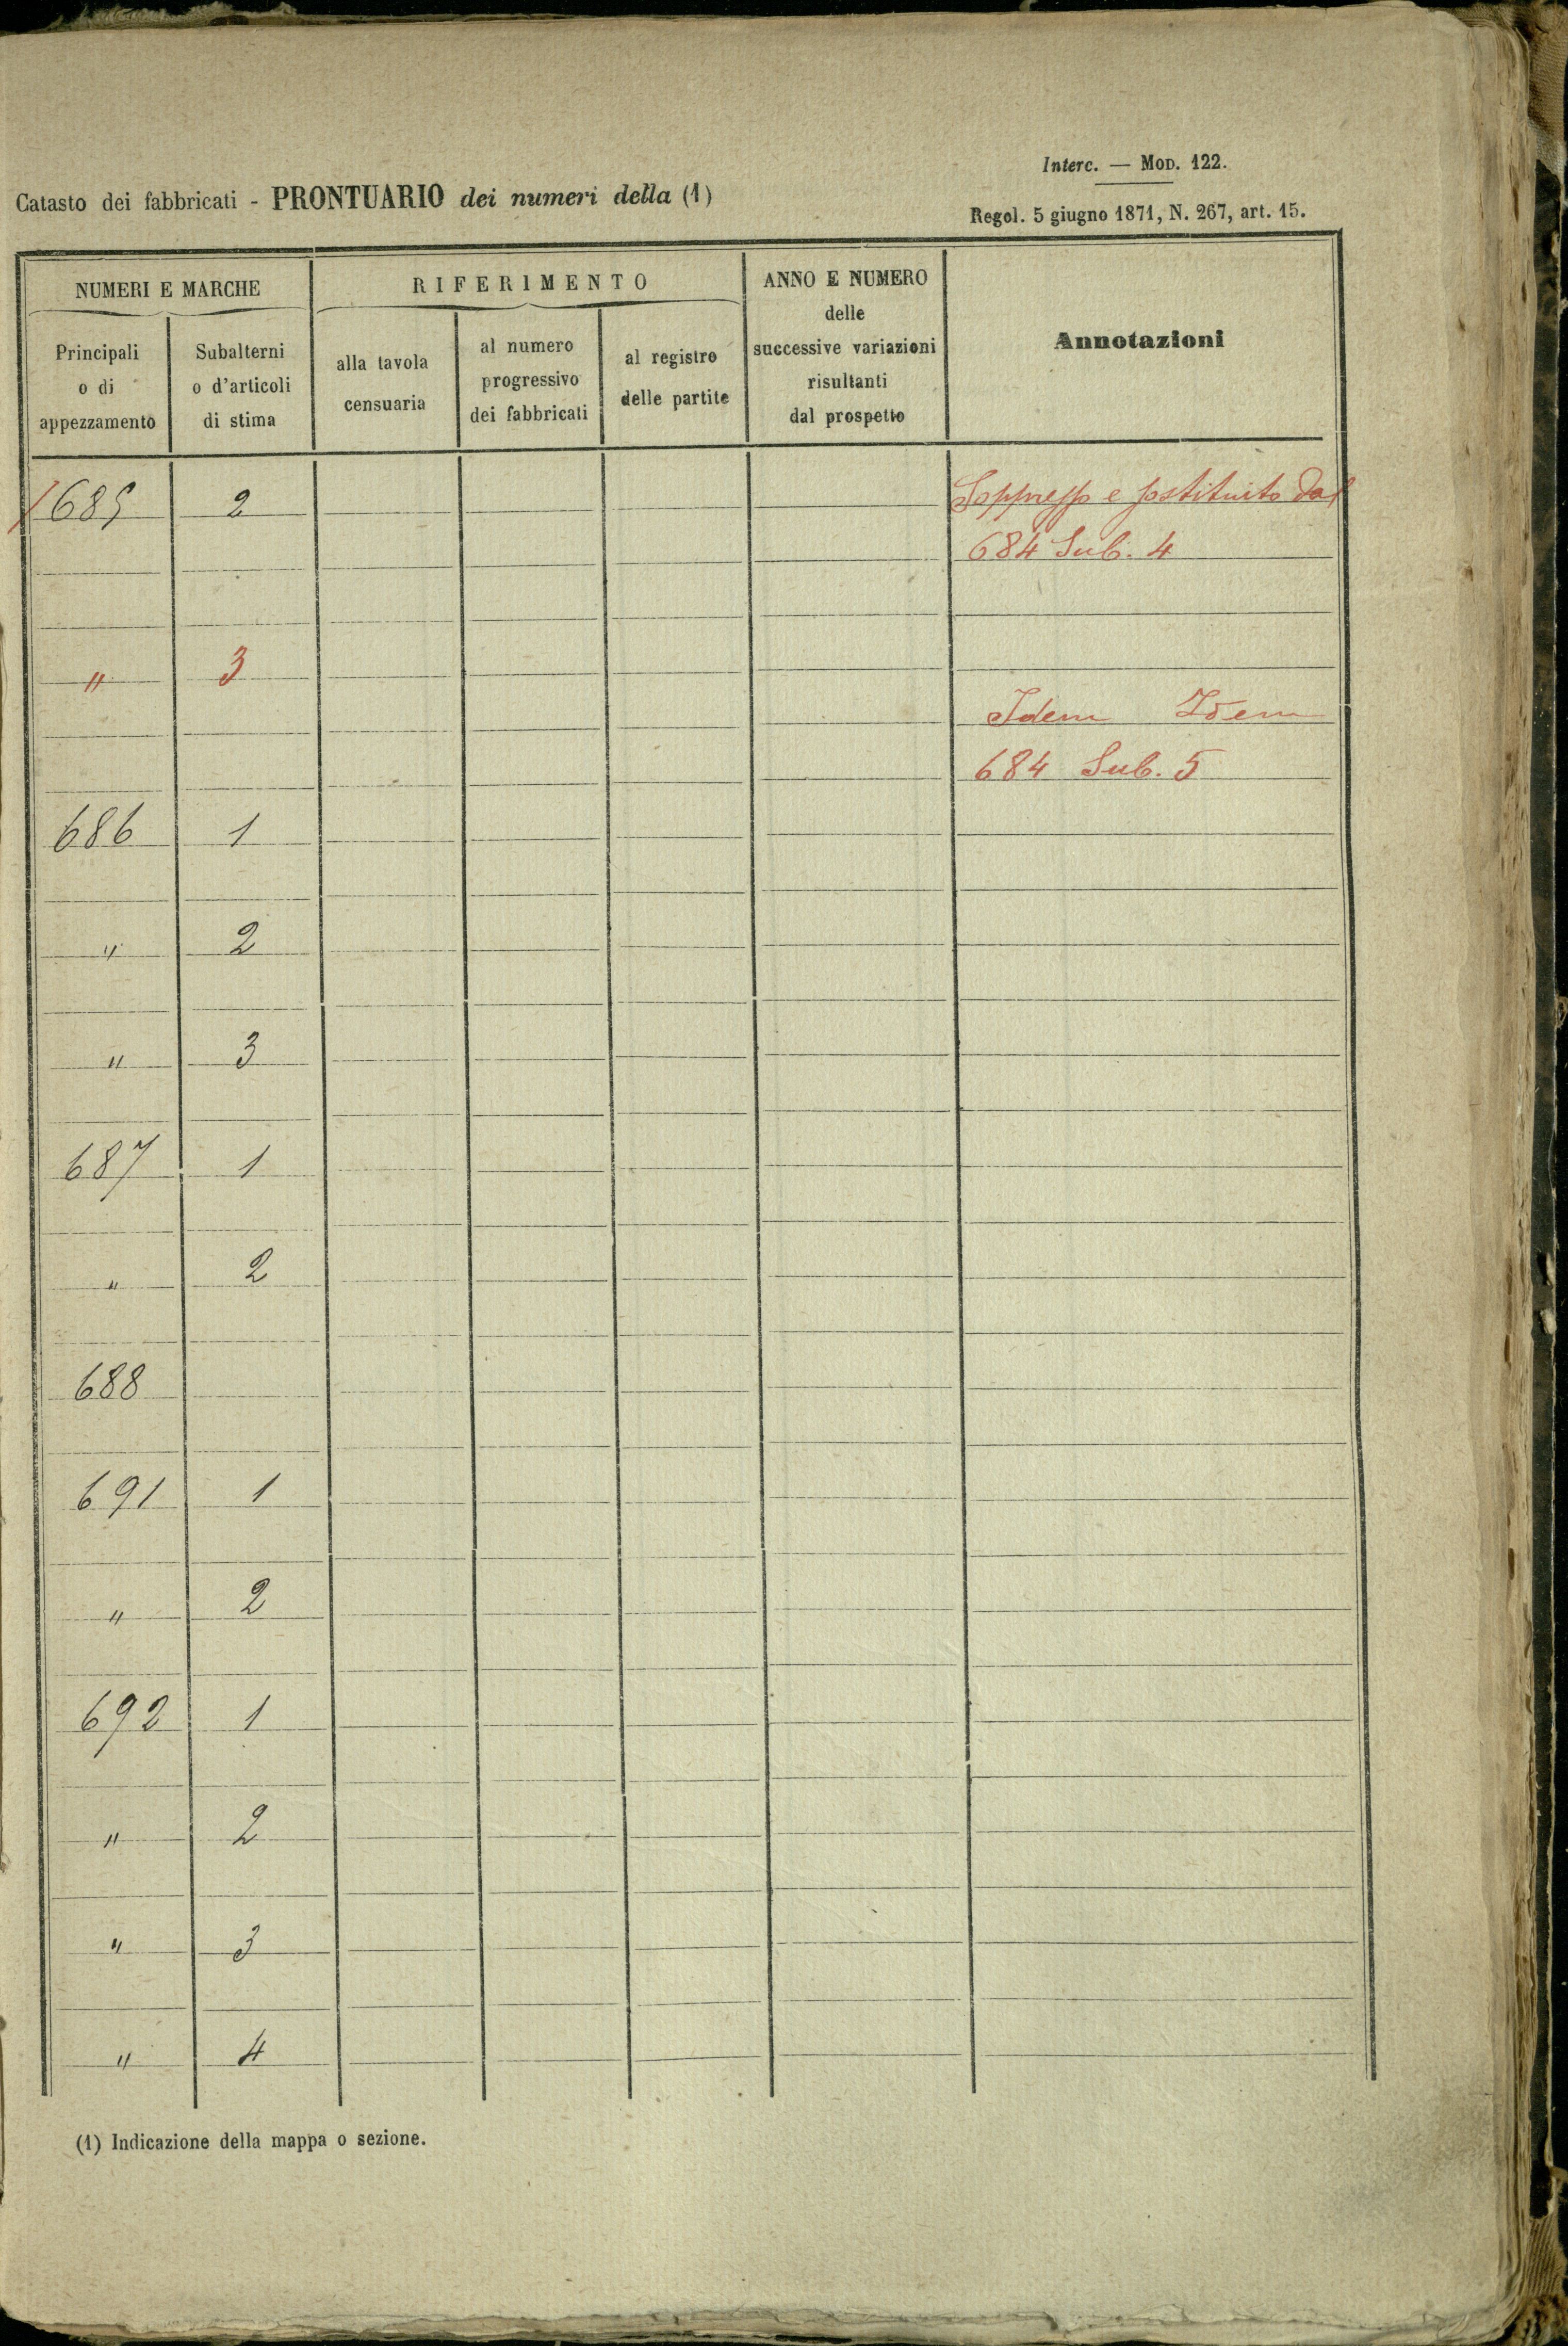 Interc. — Mod. 122.
Catasto dei fabbricati - PRONTUARIO dei numeri della (1)
Regol. 5 giugno 1871, N. 267, art. 15.
NUMERI E MARCHE
Principali
o di
appezzamento
Subalterni
o d'articoli
di stima
RIFERIMENTO
alla tavola
censuaria
al numero
progressivo
dei fabbricati
al registro
delle partite
ANNO E NUMERO
delle
successive variazioni
risultanti
dal prospetto
Annotazioni
685 2 Soppresso e sostituito dal
684 Sub. 4
" 3
Idem Idem
684 Sub. 5
686 1
" 2
" 3
687 1
" 2
688
691 1
" 2
692 1
" 2
" 3
" 4
(1) Indicazione della mappa o sezione.